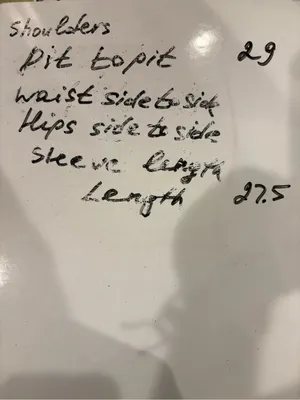 Shoulders
Pit to pit 29
waist side to side
Hips side to side
Sleeve length
Length 27.5